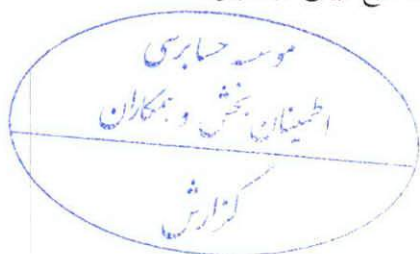 موسسه حسابرسی
اطمینان بخش و همکاران
گزارش